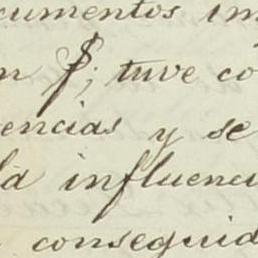 cumentos im
n $; tuve co
encias y se
la influenci
conseguid